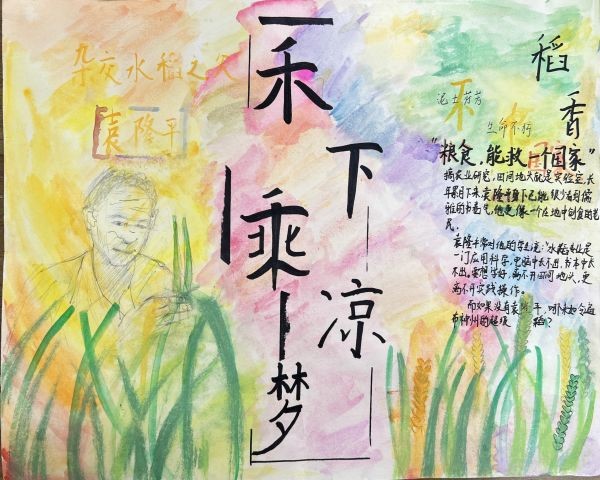 杂交水稻之父
袁隆平
禾下乘凉梦
稻香
泥土芬芳
禾
生命不朽
"粮食,能救一个国家"
搞农业研究，田间地头就是实验室,长
年累月下来,袁隆平身上已能很少看到儒
雅的书卷气,他更像一个在地中刨食的老
民。
袁隆平常对他的学生说:"水稻专业是
一门应用科学,电脑中长不出,书本中长
不出。要想学好,离不开田间地头,更
离不开实践操作。
而如果没有袁隆平,哪
布神州的超级稻?